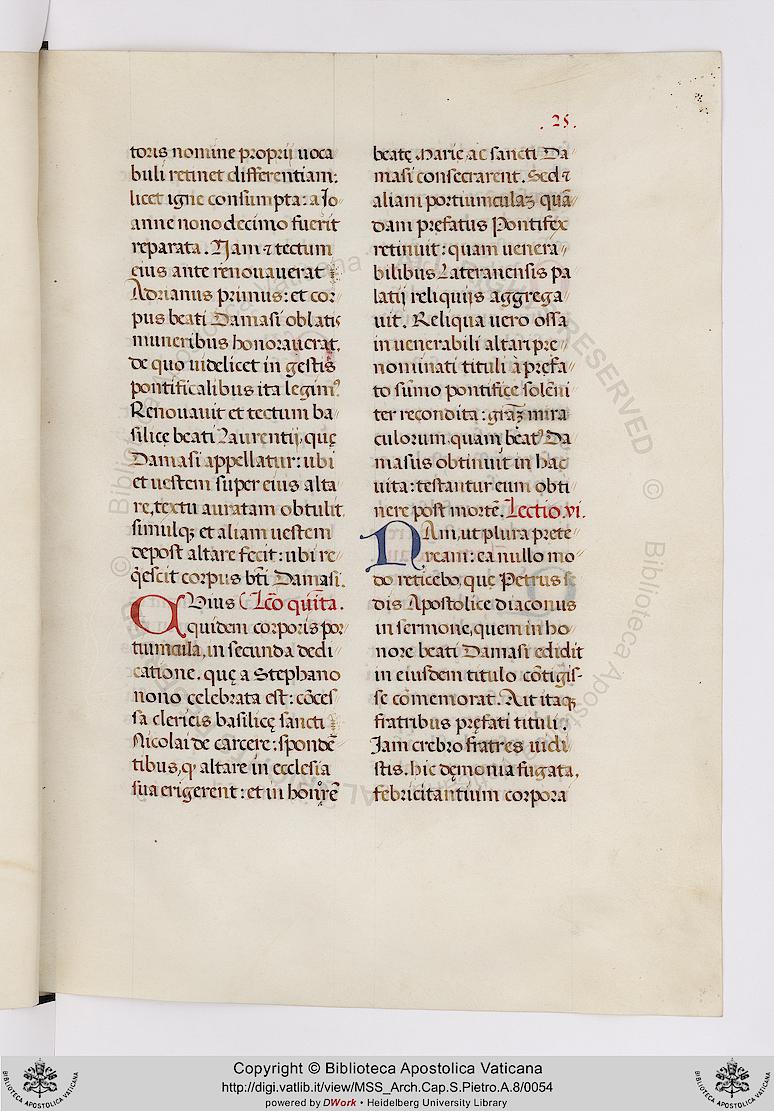 . 25 .
toris nomine proprij uoca
buli retinet differentiam:
licet igne consumpta: a Jo
anne nono decimo fuerit
reparata. Nam ⁊ tectum
eius ante renouauerat
Adrianus primus: et cor
pus beati Damasi oblatis
muneribus honorauerat.
de quo uidelicet in gestis
pontificalibus ita legim⁹
Renouauit et tectum ba
silicę beati Laurentij, quę
Damasi appellatur: ubi
et uestem super eius alta
re, textu auratam obtulit.
simulqꝫ et aliam uestem
depost altare fecit: ubi re
q̇escit corpus bt̄i Damasi.
Lc̄o quīta.
quidem corporis por
tiuncula, in secunda dedi
catione, quę a Stephano
nono celebrata est: cōces
sa clericis basilicę sancti
Nicolai de carcere: spondē
tibus, ꝙ altare in ecclesia
sua erigerent: et in honorē
beatę Marię, ac sancti Da
masi consecrarent. Sed ⁊
aliam portiunculaꝫ quā
dam prefatus Pontifex
retinuit: quam uenera
bilibus Lateranensis pa
latij reliquijs aggrega
uit. Reliqua uero ossa
in uenerabili altari pre
nominati tituli a prefa
to sūmo pontifice solēni
ter recondita: grāꝫ mira
culorum, quam beat⁹ Da
masus obtinuit in hac
uita: testantur eum obti
nere post mortē. Lectio. vi.
NAm, ut plura prete
ream: ea nullo mo
do reticebo, quę Petrus se
dis Apostolice diaconus
in sermone, quem in ho
nore beati Damasi edidit
in eiusdem titulo cōtigis-
se cōmemorat. Ait itaqꝫ
fratribus prefati tituli.
Jam crebro fratres uidi
stis. hic dęmonia fugata,
febricitantium corpora
Copyright © Biblioteca Apostolica Vaticana
http://digi.vatlib.it/view/MSS_Arch.Cap.S.Pietro.A.8/0054
powered by DWork • Heidelberg University Library
BIBLIOTECA APOSTOLICA VATICANA
BIBLIOTECA APOSTOLICA VATICANA